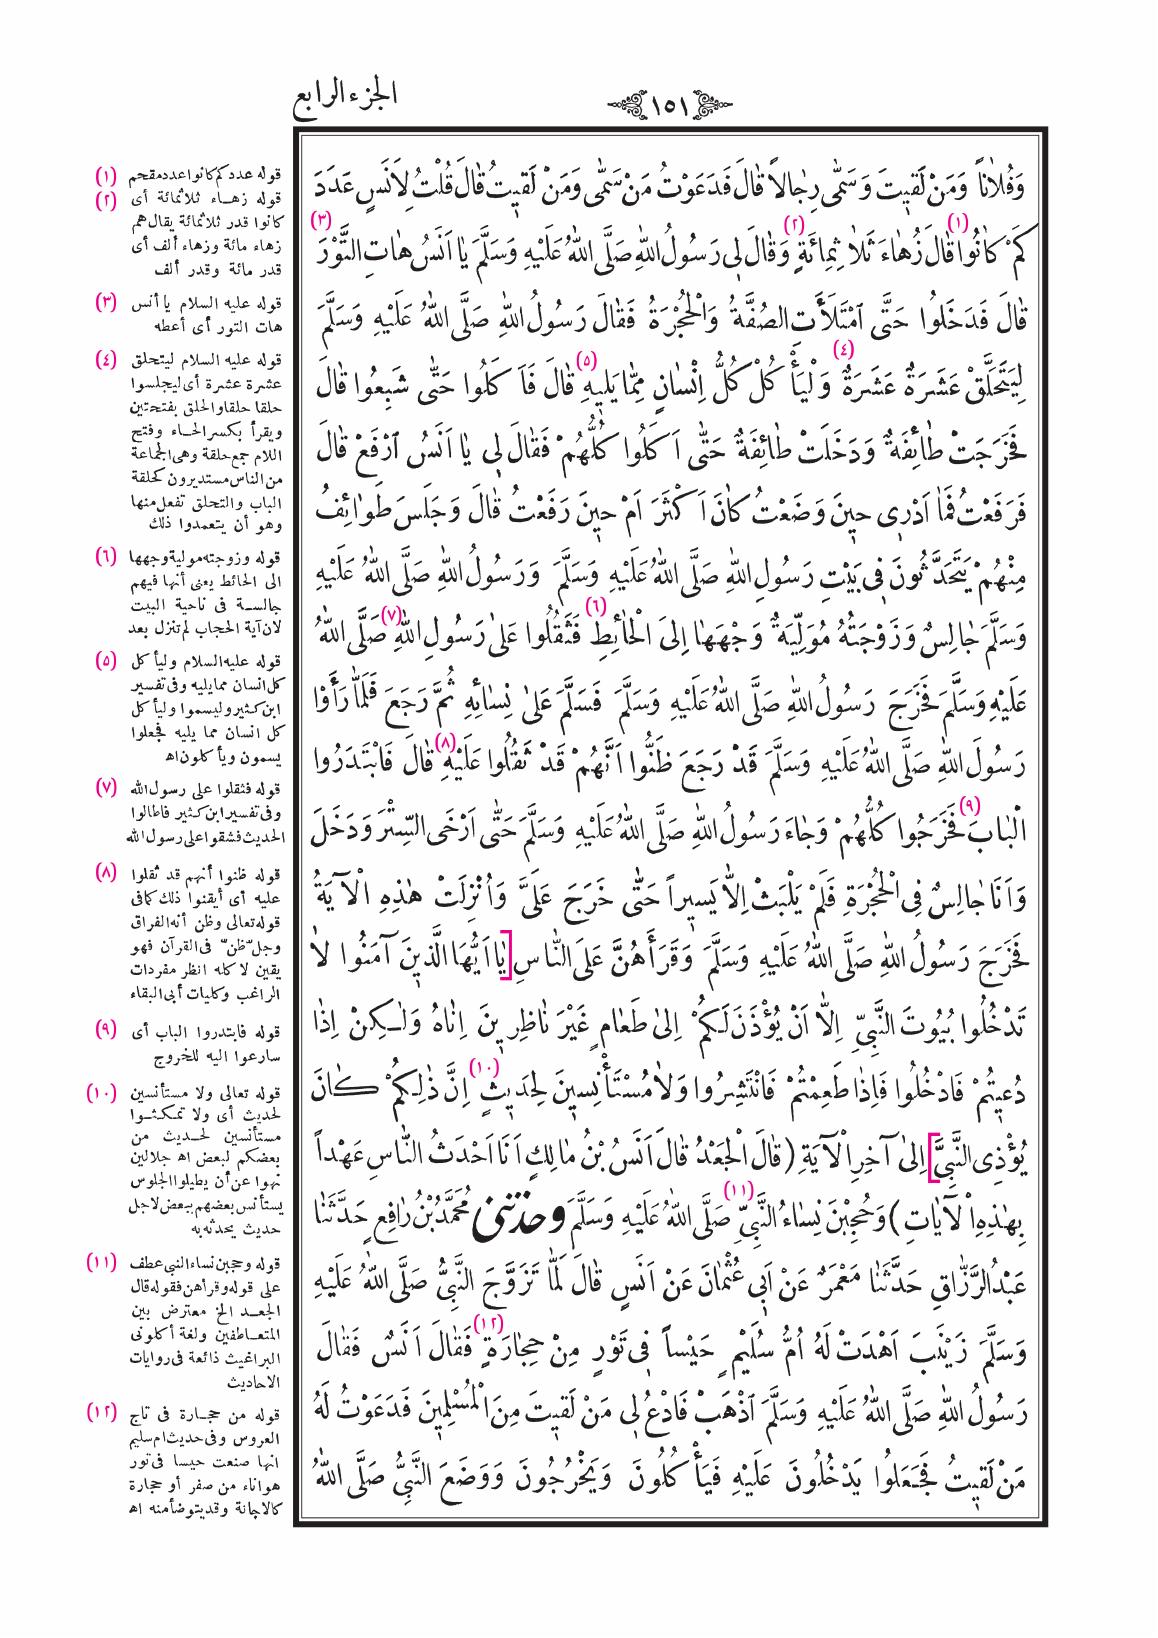 الجزء الرابع
١٥١
وَفُلَانًا وَمَنْ لَقِيتَ وَسَمَّى رِجَالًا قَالَ فَدَعَوْتُ مَنْ سَمَّى وَمَنْ لَقِيتُ قَالَ قُلْتُ لِأَنَسٍ عَدَدَ
كَمْ كَانُوا (١) قَالَ زُهَاءَ ثَلَاثِمِائَةٍ (٢) وَقَالَ لِي رَسُولُ اللهِ صَلَّى اللهُ عَلَيْهِ وَسَلَّمَ يَا اَنَسُ هَاتِ التَّوْرَ (٣)
قَالَ فَدَخَلُوا حَتَّى آمْتَلَأَتِ الصُّفَّةُ وَالْحُجْرَةُ فَقَالَ رَسُولُ اللهِ صَلَّى اللهُ عَلَيْهِ وَسَلَّمَ
لِيَتَحَلَّقْ عَشَرَةٌ عَشَرَةٌ (٤) وَلْيَأْكُلْ كُلُّ اِنْسَانٍ مِمَّا يَلِيهِ (٥) قَالَ فَاَكَلُوا حَتَّى شَبِعُوا قَالَ
فَخَرَجَتْ طَائِفَةٌ وَدَخَلَتْ طَائِفَةٌ حَتَّى اَكَلُوا كُلُّهُمْ فَقَالَ لِي يَا اَنَسُ آرْفَعْ قَالَ
فَرَفَعْتُ فَمَا اَدْرِي حِينَ وَضَعْتُ كَانَ اَكْثَرَ اَمْ حِينَ رَفَعْتُ قَالَ وَجَلَسَ طَوَائِفُ
مِنْهُمْ يَتَحَدَّثُونَ فِي بَيْتِ رَسُولِ اللهِ صَلَّى اللهُ عَلَيْهِ وَسَلَّمَ وَرَسُولُ اللهِ صَلَّى اللهُ عَلَيْهِ
وَسَلَّمَ جَالِسٌ وَزَوْجَتُهُ مُوَلِّيَةٌ وَجْهَهَا اِلَى الْحَائِطِ (٦) فَثَقُلُوا عَلَى رَسُولِ اللهِ (٧) صَلَّى اللهُ
عَلَيْهِ وَسَلَّمَ فَخَرَجَ رَسُولُ اللهِ صَلَّى اللهُ عَلَيْهِ وَسَلَّمَ فَسَلَّمَ عَلَى نِسَائِهِ ثُمَّ رَجَعَ فَلَمَّا رَأَوْا
رَسُولَ اللهِ صَلَّى اللهُ عَلَيْهِ وَسَلَّمَ قَدْ رَجَعَ ظَنُّوا اَنَّهُمْ قَدْ ثَقُلُوا عَلَيْهِ (٨) قَالَ فَابْتَدَرُوا
الْبَابَ (٩) فَخَرَجُوا كُلُّهُمْ وَجَاءَ رَسُولُ اللهِ صَلَّى اللهُ عَلَيْهِ وَسَلَّمَ حَتَّى اَرْخَى السِّتْرَ وَدَخَلَ
وَاَنَا جَالِسٌ فِي الْحُجْرَةِ فَلَمْ يَلْبَثْ اِلَّا يَسِيرًا حَتَّى خَرَجَ عَلَيَّ وَاُنْزِلَتْ هٰذِهِ الْآيَةُ
فَخَرَجَ رَسُولُ اللهِ صَلَّى اللهُ عَلَيْهِ وَسَلَّمَ وَقَرَأَهُنَّ عَلَى النَّاسِ [يَا اَيُّهَا الَّذِينَ آمَنُوا لَا
تَدْخُلُوا بُيُوتَ النَّبِيِّ اِلَّا اَنْ يُؤْذَنَ لَكُمْ اِلَى طَعَامٍ غَيْرَ نَاظِرِينَ اِنَاهُ وَلٰكِنْ اِذَا
دُعِيتُمْ فَادْخُلُوا فَاِذَا طَعِمْتُمْ فَانْتَشِرُوا وَلَا مُسْتَأْنِسِينَ لِحَدِيثٍ (١٠) اِنَّ ذٰلِكُمْ كَانَ
يُؤْذِي النَّبِيَّ] اِلَى آخِرِ الْآيَةِ (قَالَ الْجَعْدُ قَالَ اَنَسُ بْنُ مَالِكٍ اَنَا اَحْدَثُ النَّاسِ عَهْدًا
بِهٰذِهِ الْآيَاتِ) وَحُجِبْنَ نِسَاءُ النَّبِيِّ (١١) صَلَّى اللهُ عَلَيْهِ وَسَلَّمَ وحدثنى مُحَمَّدُ بْنُ رَافِعٍ حَدَّثَنَا
عَبْدُ الرَّزَّاقِ حَدَّثَنَا مَعْمَرٌ عَنْ اَبِي عُثْمَانَ عَنْ اَنَسٍ قَالَ لَمَّا تَزَوَّجَ النَّبِيُّ صَلَّى اللهُ عَلَيْهِ
وَسَلَّمَ زَيْنَبَ اَهْدَتْ لَهُ اُمُّ سُلَيْمٍ حَيْسًا فِي تَوْرٍ مِنْ حِجَارَةٍ (١٢) فَقَالَ اَنَسٌ فَقَالَ
رَسُولُ اللهِ صَلَّى اللهُ عَلَيْهِ وَسَلَّمَ آذْهَبْ فَادْعُ لِي مَنْ لَقِيتَ مِنَ الْمُسْلِمِينَ فَدَعَوْتُ لَهُ
مَنْ لَقِيتُ فَجَعَلُوا يَدْخُلُونَ عَلَيْهِ فَيَأْكُلُونَ وَيَخْرُجُونَ وَوَضَعَ النَّبِيُّ صَلَّى اللهُ
(١) قوله عدد كم كانوا عدد مقحم
(٢) قوله زهاء ثلاثمائة أى
كانوا قدر ثلاثمائة يقال هم
زهاء مائة وزهاء ألف أى
قدر مائة وقدر ألف
(٣) قوله عليه السلام يا أنس
هات التور أى أعطه
(٤) قوله عليه السلام ليتحلق
عشرة عشرة أى ليجلسوا
حلقا حلقا والحلق بفتحتين
ويقرأ بكسر الحاء وفتح
اللام جمع حلقة وهى الجماعة
من الناس مستديرون كحلقة
الباب والتحلق تفعل منها
وهو أن يتعمدوا ذلك
(٦) قوله وزوجته مولية وجهها
الى الحائط يعنى أنها فيهم
جالسة فى ناحية البيت
لان آية الحجاب لم تنزل بعد
(٥) قوله عليه السلام وليأكل
كل انسان مما يليه وفى تفسير
ابن كثير وليسموا وليأكل
كل انسان مما يليه فجعلوا
يسمون ويأكلون اه
(٧) قوله فثقلوا على رسول الله
وفى تفسير ابن كثير فاطالوا
الحديث فشقوا على رسول الله
(٨) قوله ظنوا أنهم قد ثقلوا
عليه أى أيقنوا ذلك كما فى
قوله تعالى وظن أنه الفراق
وجل ظنّ فى القرآن فهو
يقين لا كله انظر مفردات
الراغب وكليات أبى البقاء
(٩) قوله فابتدروا الباب أى
سارعوا اليه للخروج
(١٠) قوله تعالى ولا مستأنسين
لحديث أى ولا تمكثوا
مستأنسين لحديث من
بعضكم لبعض اه جلالين
نهوا عن أن يطيلوا الجلوس
يستأنس بعضهم ببعض لاجل
حديث يحدثه به
(١١) قوله وحجبن نساء النبى عطف
على قوله وقرأهن فقوله قال
الجعد الخ معترض بين
المتعاطفين ولغة أكلونى
البراغيث ذائعة فى روايات
الاحاديث
(١٢) قوله من حجارة فى تاج
العروس وفى حديث ام سليم
انها صنعت حيسا فى تور
هو اناء من صفر أو حجارة
كالاجانة وقد يتوضأ منه اه